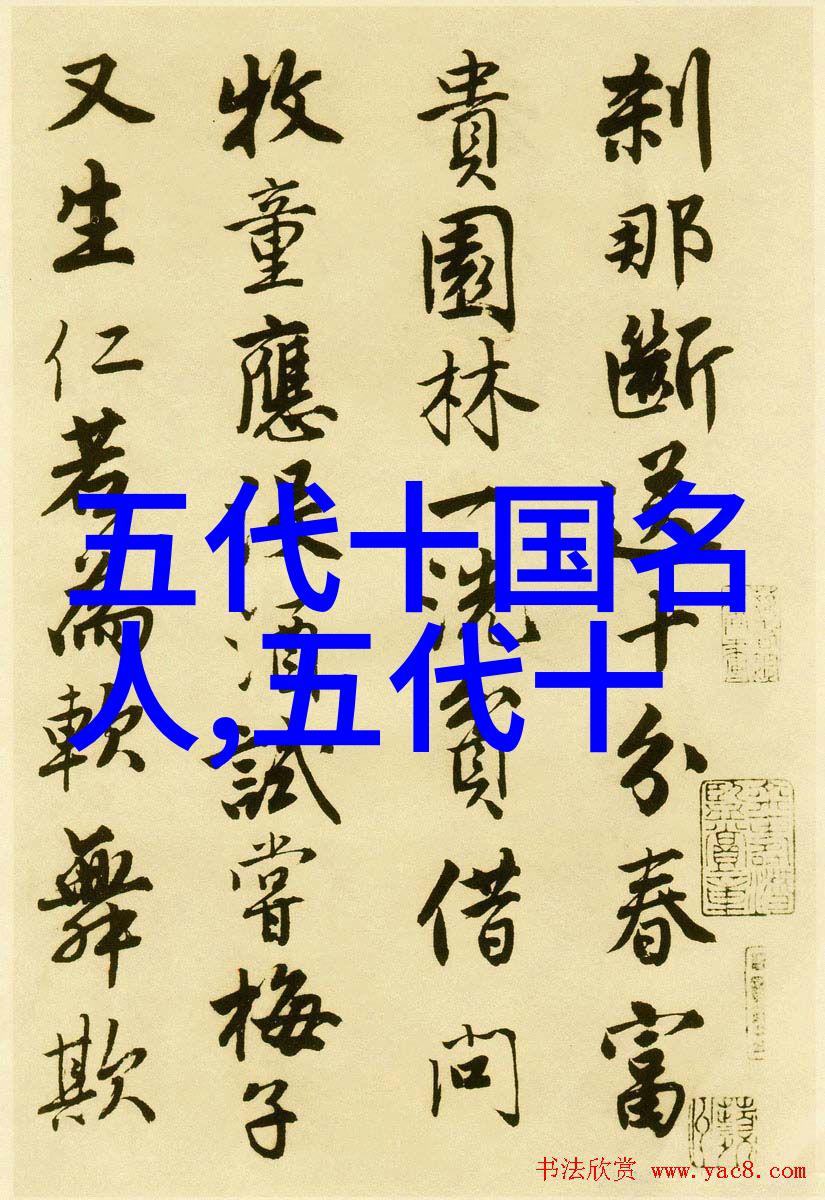 刹那斷送十分春富
貴園林一洗貧借問
牧童應沒酒試嘗梅子
又生仁若為軟舞欺
五代十国名
人,五代十
书法欣赏 www.yac8.com